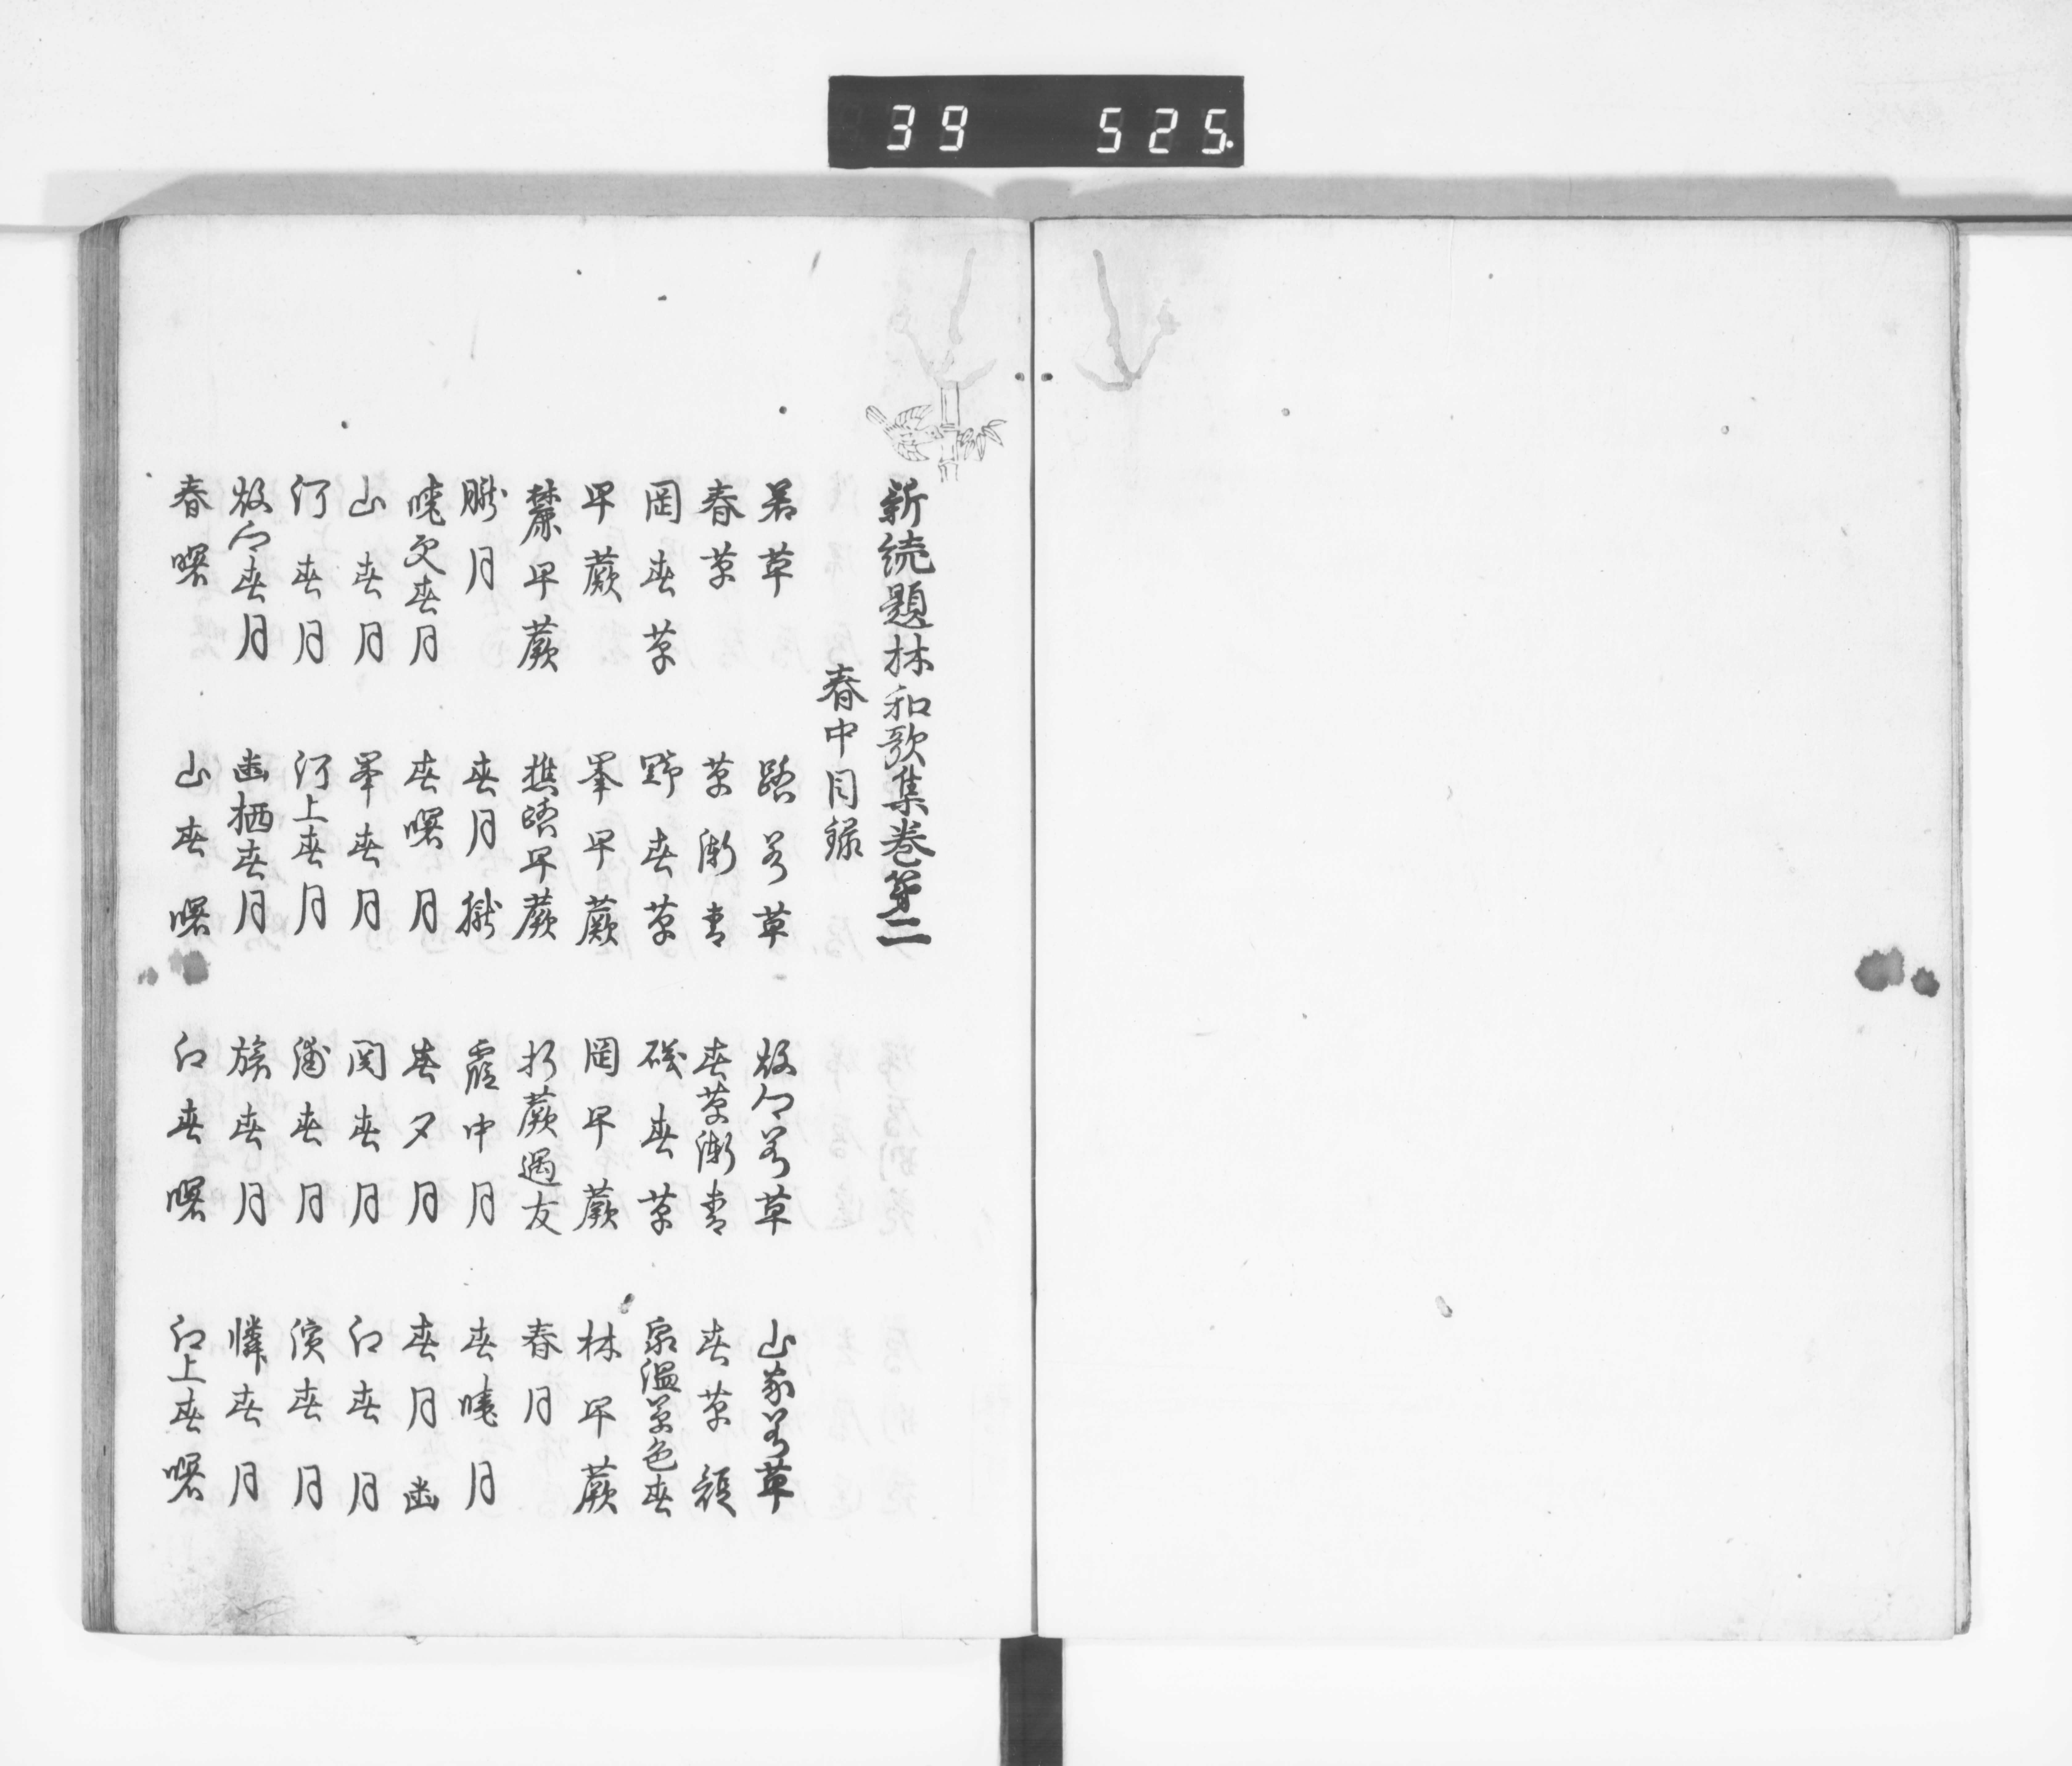 39 525.
新続題林和歌集巻第二
春中目録
若草 路若草 故郷若草 山家若草
春草 草漸青 春草漸青 春草短
岡春草 野春草 磯春草 泉温草色春
早蕨 峯早蕨 岡早蕨 林早蕨
麓早蕨 樵路早蕨 折蕨遇友 春月
朧月 春月朧 霞中月 春暁月
暁更春月 春曙月 春夕月 春月幽
山春月 峯春月 関春月 江春月
河春月 河上春月 浦春月 浜春月
故郷春月 幽栖春月 旅春月 憐春月
春曙 山春曙 江春曙 江上春曙